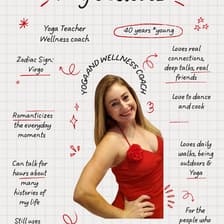 Yoga Teacher
Wellness coach
40 years *young
Zodiac Sign:
Virgo
YOGA AND WELLNESS COACH
Loves real
connections,
deep talks, real
friends
Love to dance
and cook
Romanticizes
the everyday
moments
Can talk for
hours about
many
histories of
my life
Loves daily
walks, being
outdoors &
Yoga
Still uses
For the
people who